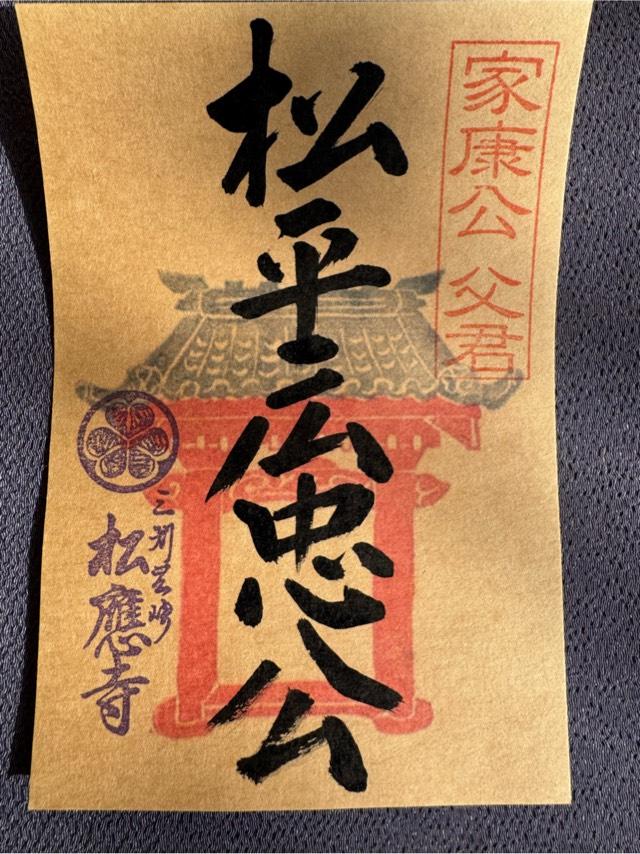 家康公 父君
松平広忠公
三州岡崎
松應寺